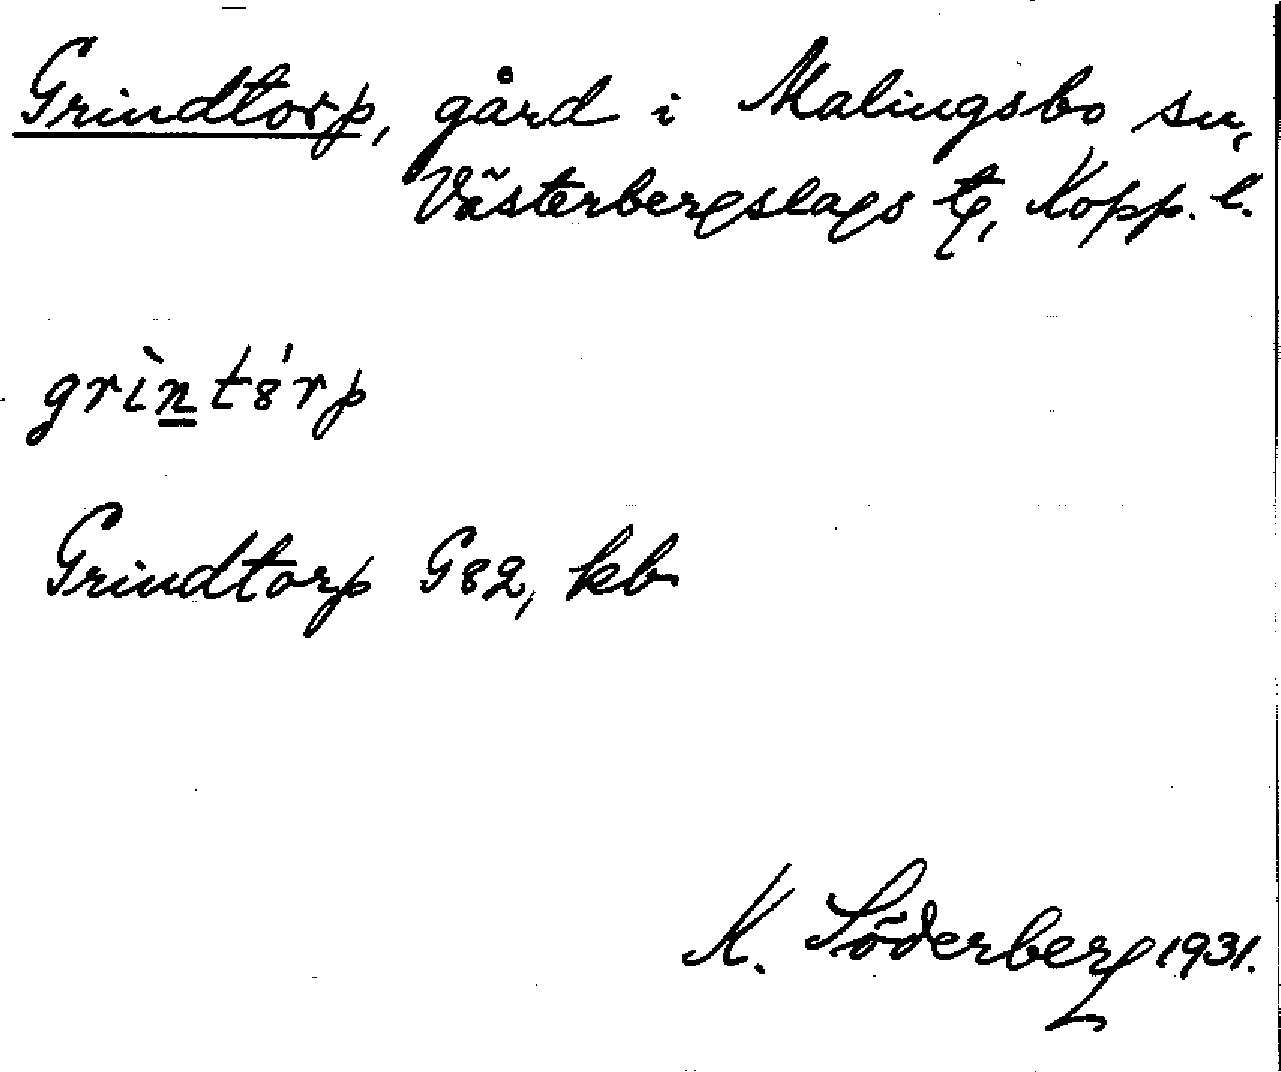 Grindtorp, gård i Malingsbo sn,
Västerbergslags tg, Kopp. l.
grìntórp
Grindtorp G82, kb
K. Söderberg 1931.